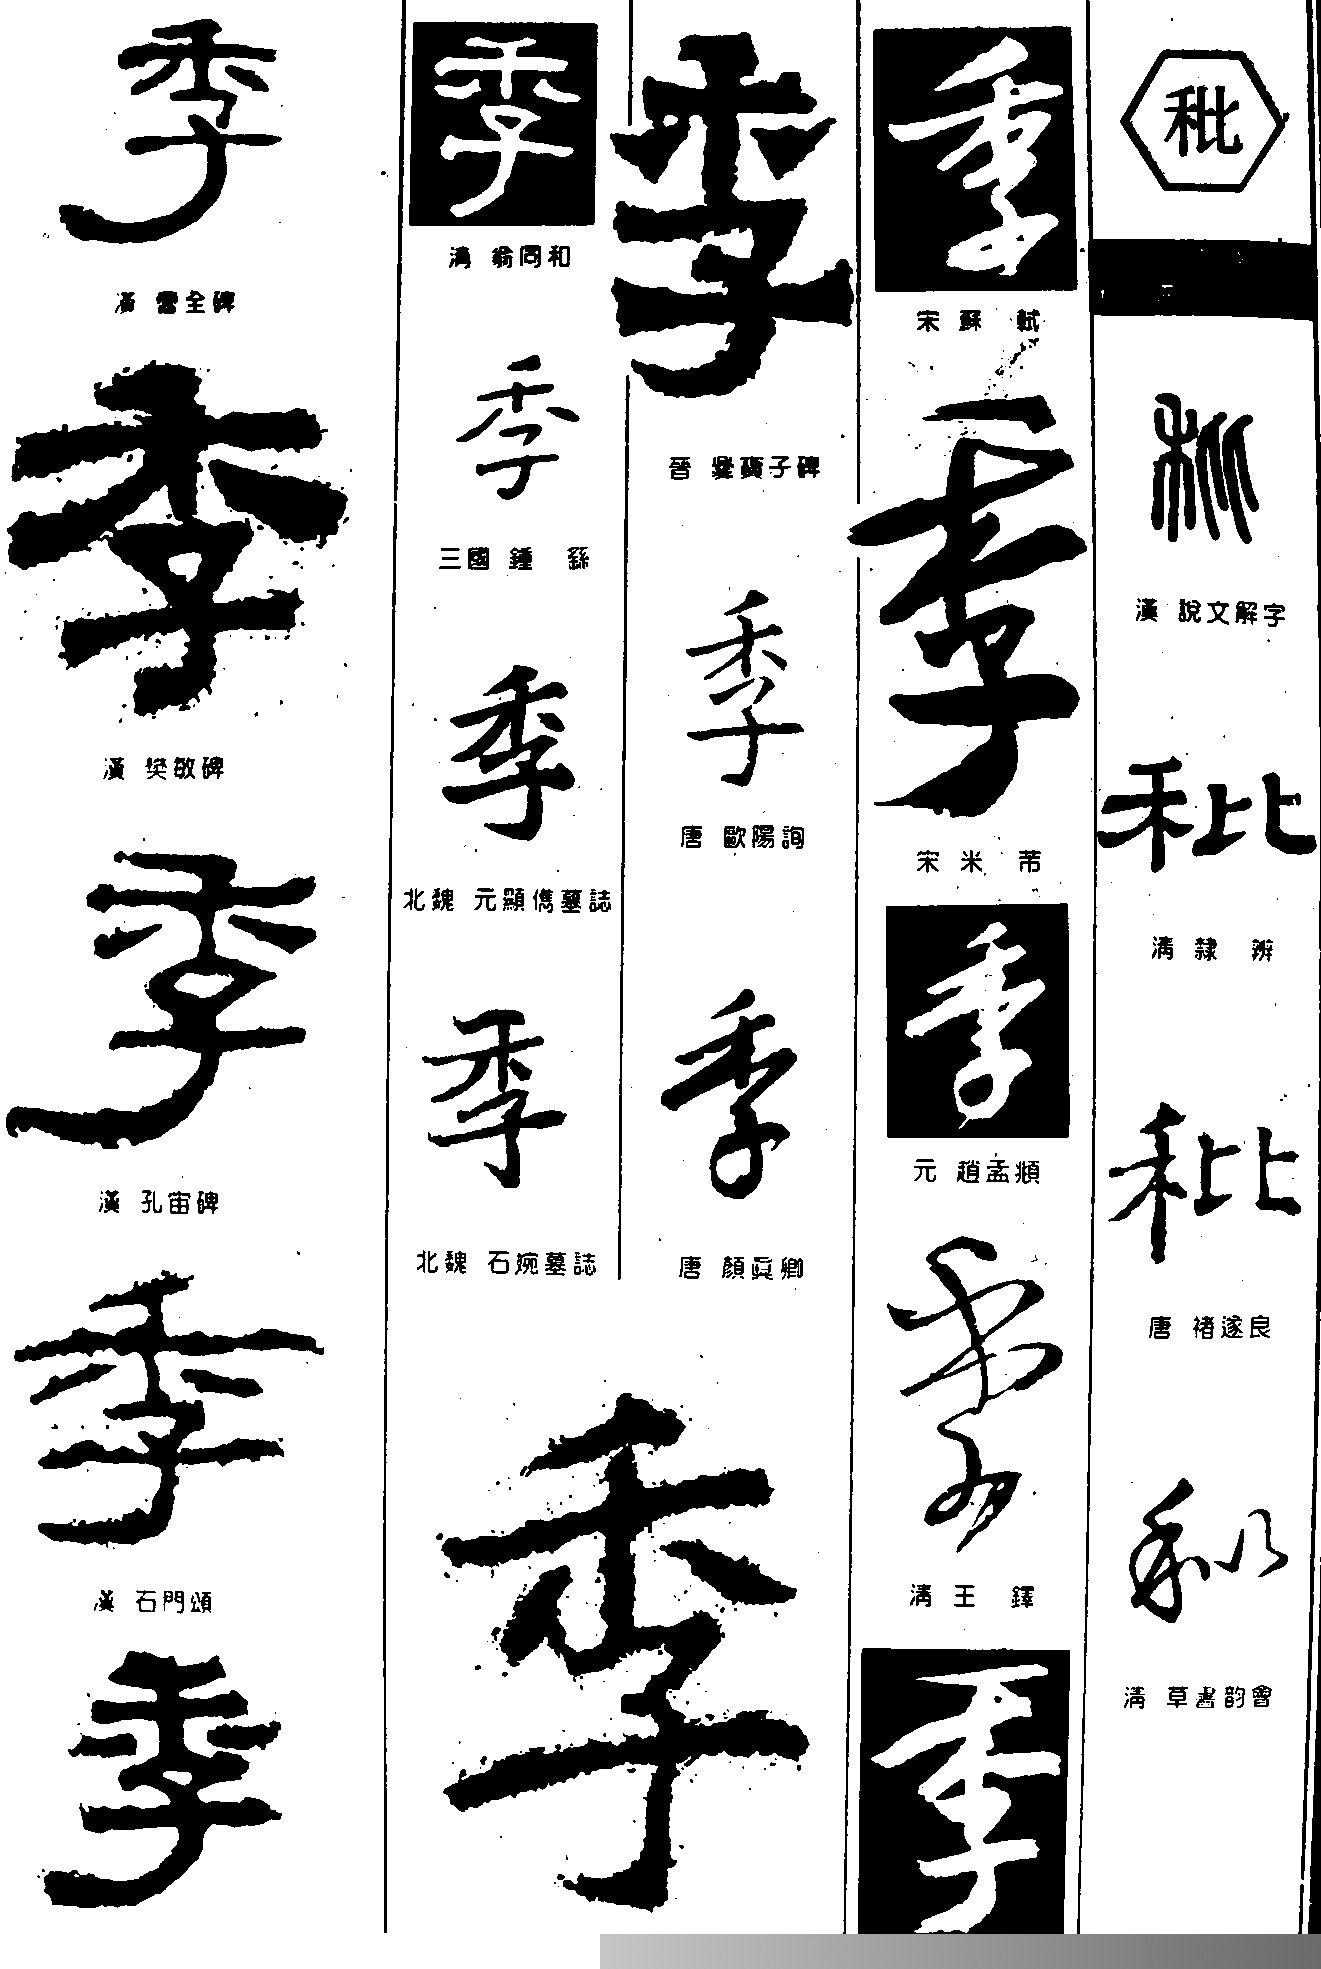 秕
秕
漢 說文解字
秕
清 隸辨
秕
唐 褚遂良
秕
清 草書韵會
季
宋 蘇軾
季
宋 米芾
季
元 趙孟頫
季
清 王鐸
季
季
晉 爨寶子碑
季
唐 歐陽詢
季
唐 顏真卿
季
清 翁同和
季
三國 鍾繇
季
北魏 元顯儁墓誌
季
北魏 石婉墓誌
季
季
漢 曹全碑
季
漢 樊敏碑
季
漢 孔宙碑
季
漢 石門頌
季